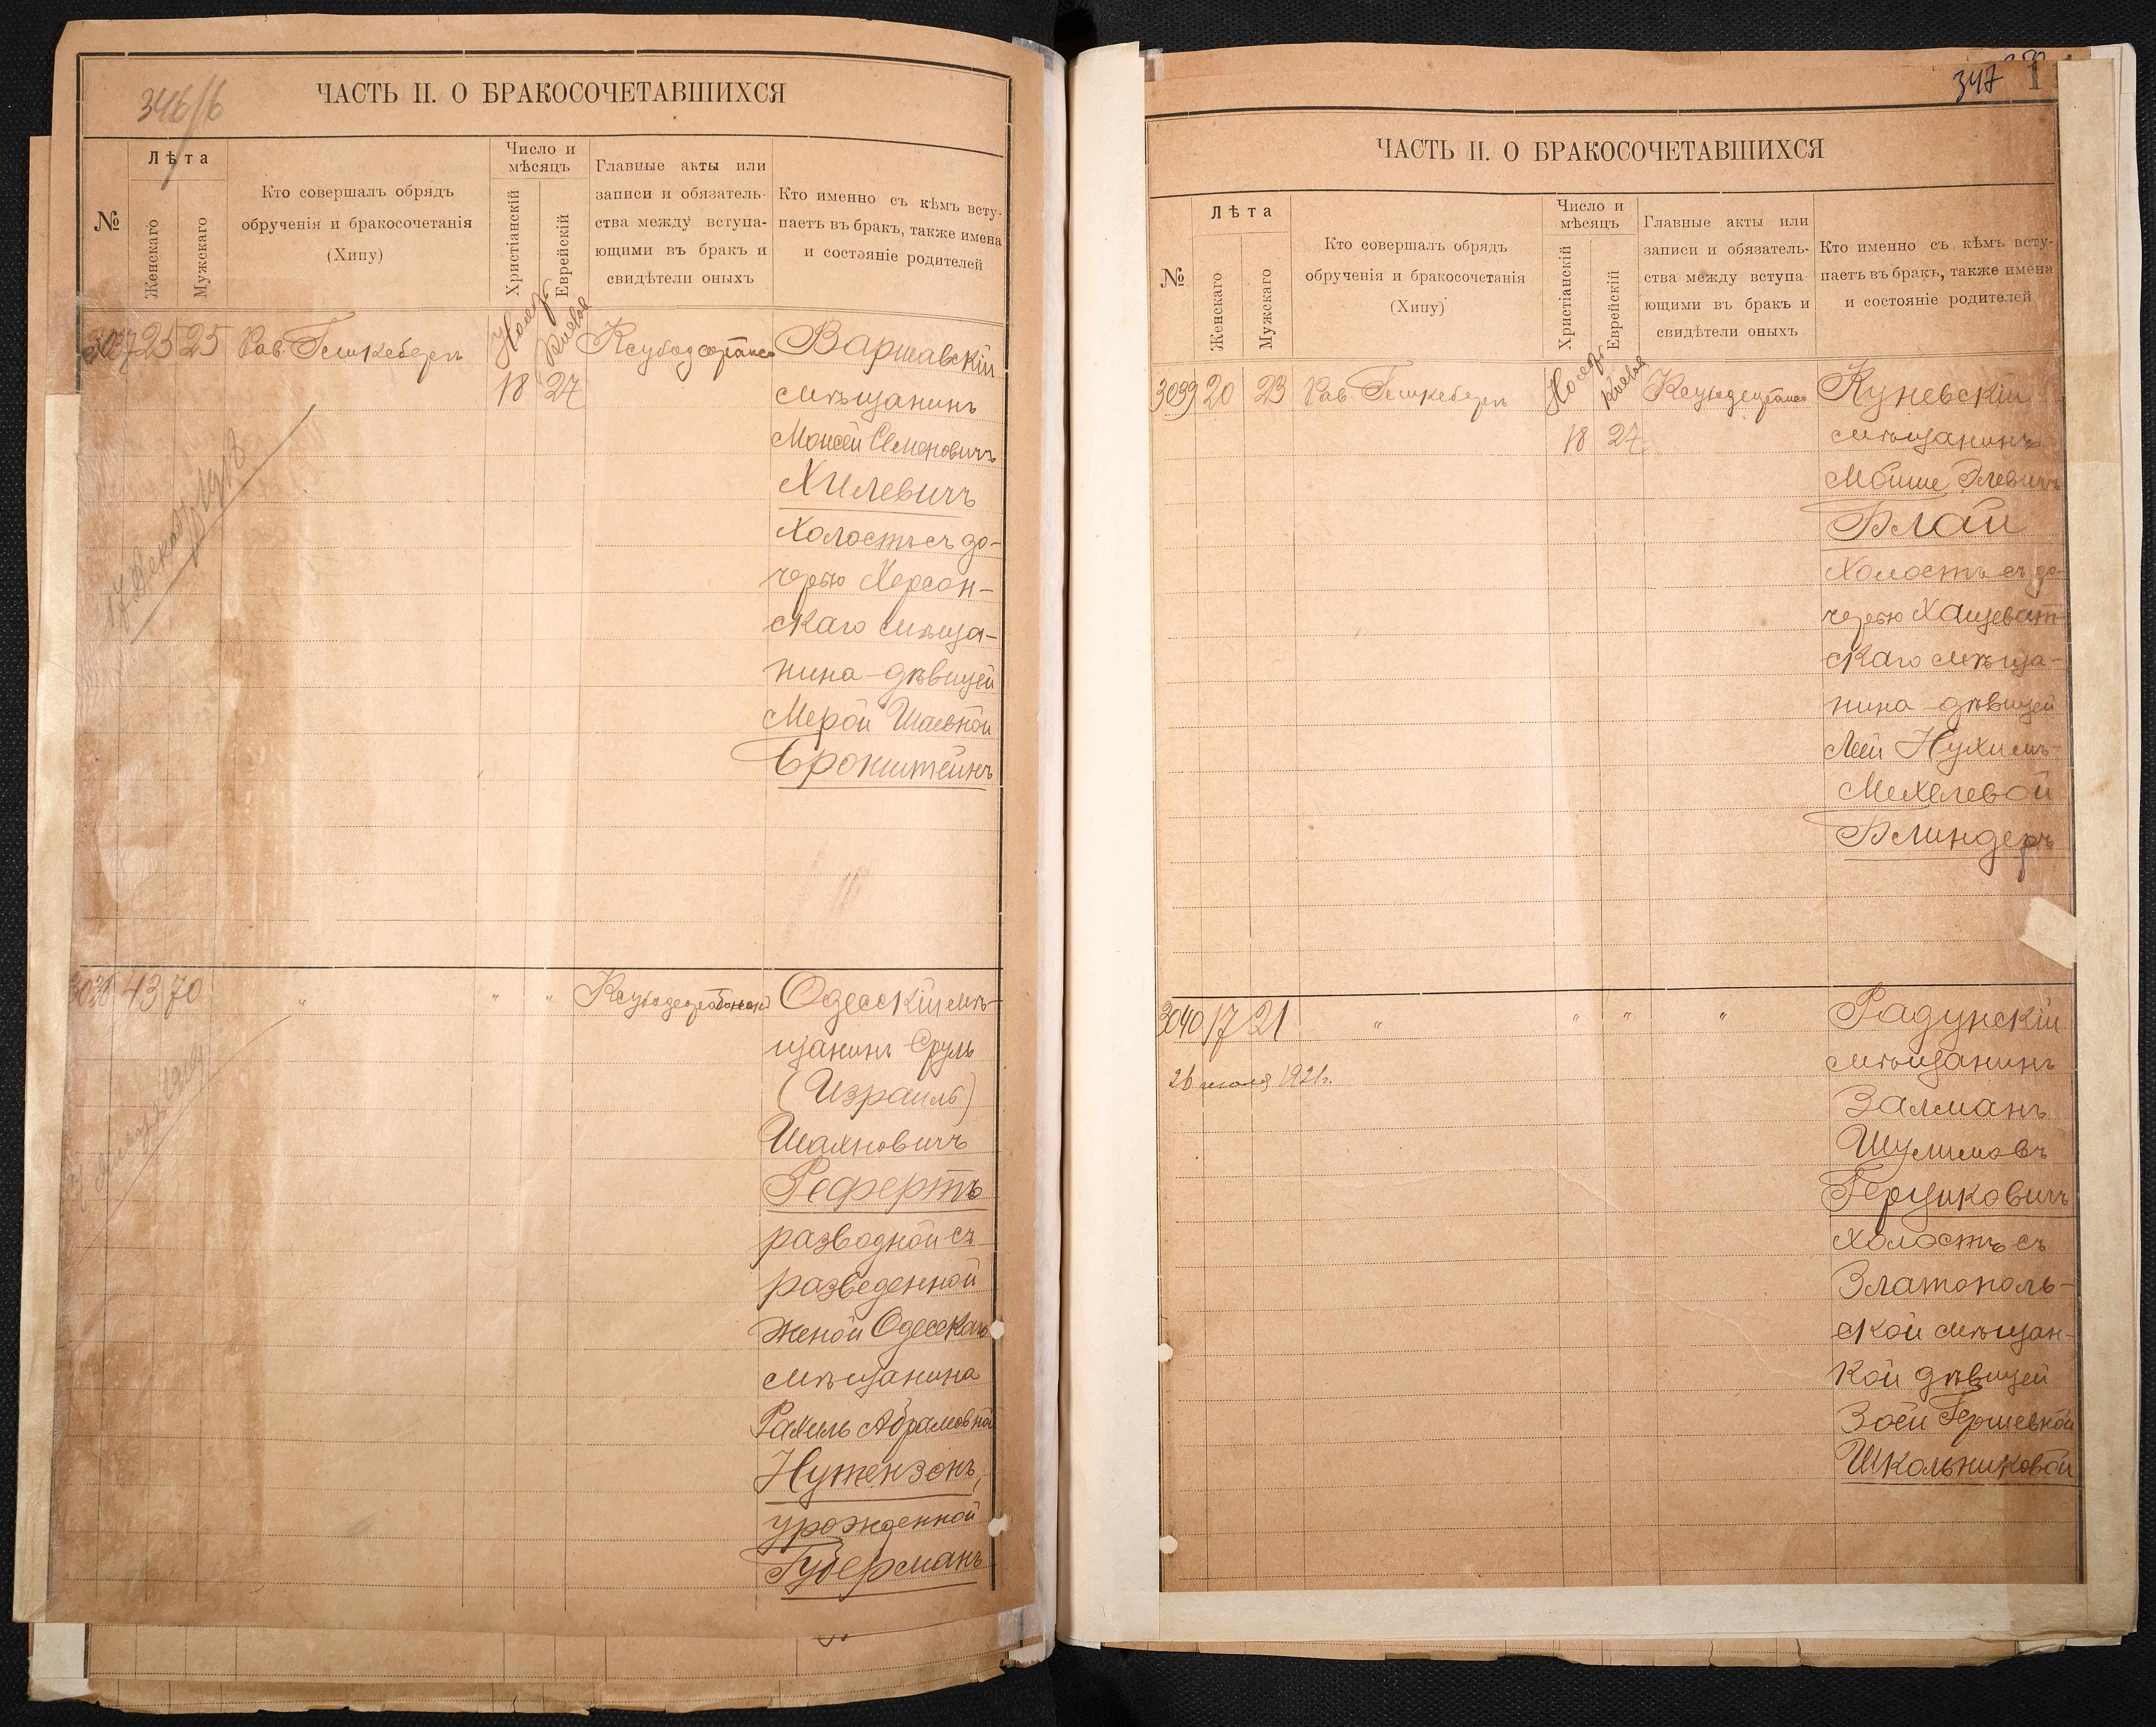 346/б
ЧАСТЬ II. О БРАКОСОЧЕТАВШИХСЯ
№
Лѣта
Женскаго
Мужскаго
Кто совершалъ обрядъ
обрученія и бракосочетанія
(Хипу)
Число и
мѣсяцъ
Христіанскій
Еврейскій
Главные акты или
записи и обязатель-
ства между вступа-
ющими въ бракъ и
свидѣтели оныхъ
Кто именно съ кѣмъ всту-
паетъ въ бракъ, также имена
и состояніе родителей
3037 25 25 Рав.
Нояб.
Кислев
18 27
Варшавскій
мѣщанинъ
Моисей Семеновичъ
Хилевичъ
холостъ съ до-
черью Херсон-
скаго мѣща-
нина - дѣвицей
Мерой Шаевной
Бронштейнъ
17 Декаб. 1918
3038 43 70 " " "
Одесскій мѣ-
щанинъ Сруль
(Израиль)
Шахновичъ
Рефертъ
разводной съ
разведенной
женой Одесскаго
мѣщанина
Рахиль Абрамовной
Нутензонъ,
урожденной
Губерманъ
347
ЧАСТЬ II. О БРАКОСОЧЕТАВШИХСЯ
№
Лѣта
Женскаго
Мужскаго
Кто совершалъ обрядъ
обрученія и бракосочетанія
(Хипу)
Число и
мѣсяцъ
Христіанскій
Еврейскій
Главные акты или
записи и обязатель-
ства между вступа-
ющими въ бракъ и
свидѣтели оныхъ
Кто именно съ кѣмъ всту-
паетъ въ бракъ, также имена
и состояніе родителей
3039 20 23 Рав.
Нояб.
Кислев
18 27
Куневскій
мѣщанинъ
Мойше Элевичъ
Блай
холостъ съ до-
черью Хащеват-
скаго мѣща-
нина - дѣвицей
Леей Нухимъ-
Мехелевой
Блиндеръ
3040 17 21 " " " "
26 июля 1921г.
Радунскій
мѣщанинъ
Залманъ
Шулимовъ
Герциковичъ
холостъ съ
Златополь-
ской мѣщан-
кой дѣвицей
Зоей Гершевной
Школьниковой